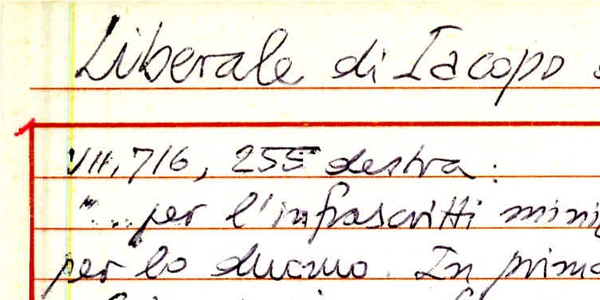 Liberale di Iacopo
VII, 716, 255 destra:
"... per l'infrascritti
per lo duomo. In